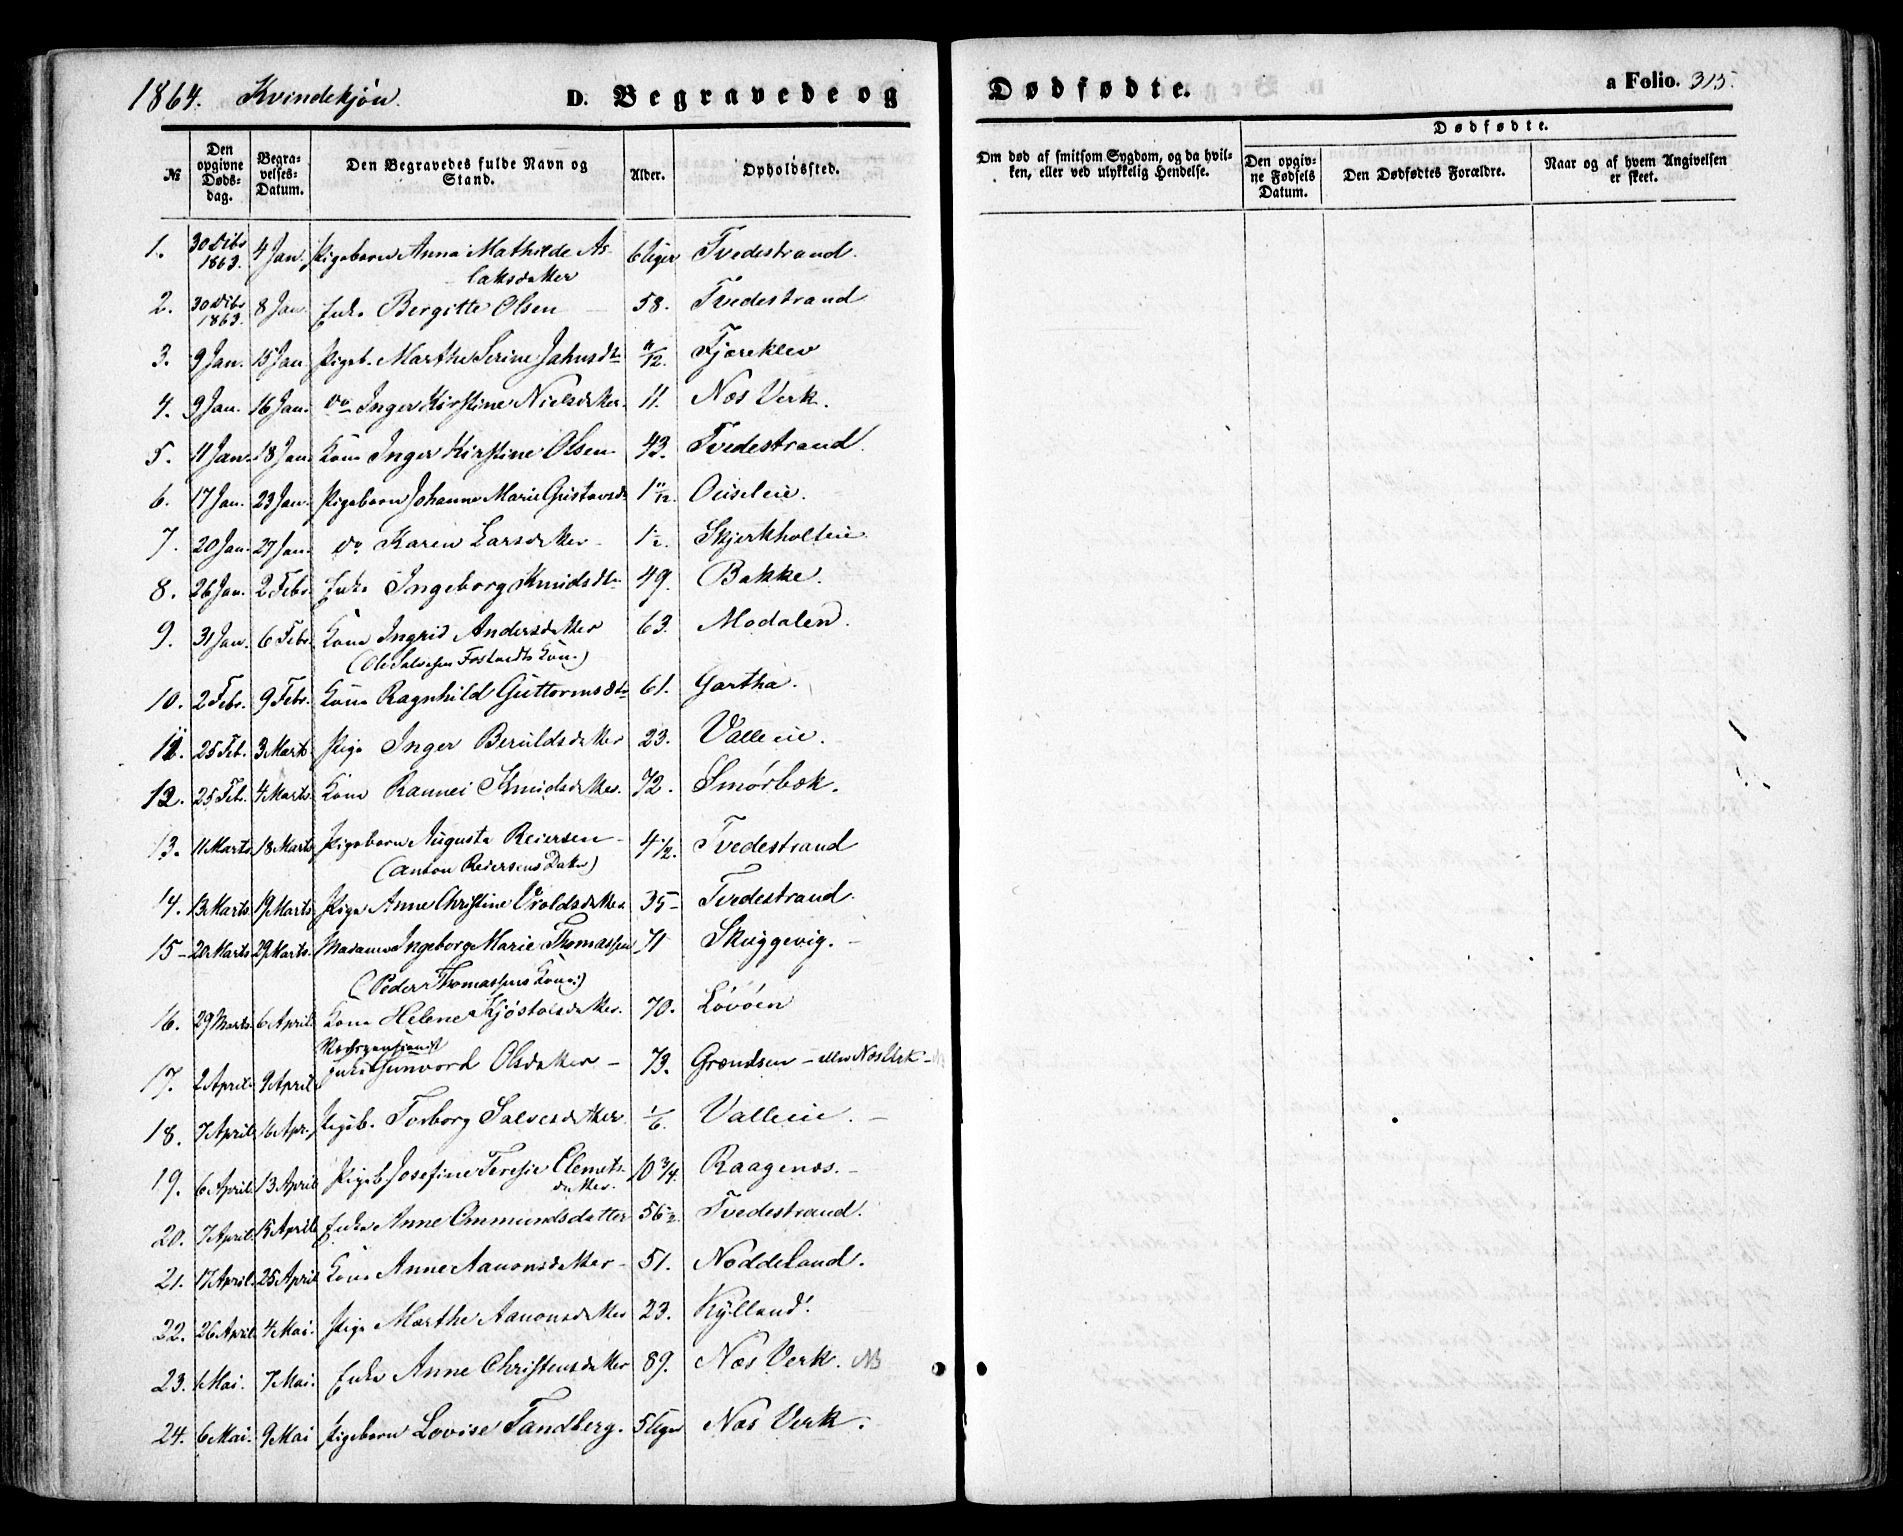 1864. Kvindekjøn. D. Begravede og Dødfødte. a Folio. 315.
Dødfødte.
№ Den opgivne Dødsdag. Begravelses-Datum. Den Begravedes fulde Navn og Stand. Alder. Opholdssted. Om død af smitsom Sygdom, og da hvilken, eller ved ulykkelig Hendelse. Den opgivne Fødsels Datum. Den Dødfødtes Forældre. Naar og af hvem Angivelsen er skeet.
1. 30 Dcbr 1863. 4 Jan. Pigebarn Anna Mathilde As- 6 Uger Tvedestrand.
laksdatter
2. 30 Dcbr 1863. 8 Jan. Enke Bergitte Olsen 58. Tvedestrand
3. 9 Jan. 15 Jan. Pigeb. Marthe Serine Jahnsdtr 11/12. Fjæreklev
4. 9 Jan. 16 Jan. do Inger Kirstine Nielsdatter. 11. Næs Verk.
5. 11 Jan. 18 Jan. Kone Inger Kirstine Olsen 43. Tvedestrand.
6. 17 Jan. 23 Jan. Pigebarn Johanne Marie Gustavsd. 1 11/12. Ouseleie.
7. 20 Jan. 27 Jan. do Karen Larsdatter 1 ½. Skjerkholteie
8. 26 Jan. 2 Febr. Enke Ingeborg Knudsdtr 49. Bakke.
9. 31 Jan. 6 Febr. Kone Ingrid Andersdatter 63. Modalen.
(Ole Salvesen Fostvedts Kone)
10. 2 Febr. 9 Febr. Kone Ragnhild Guttormsdtr 61. Gartha.
11. 25 Feb. 3 Marts Pige Inger Beruldsdatter 23. Valleeie.
12. 25 Feb. 4 Marts. Kone Rannei Knudsdatter. 72. Smørbæk.
13. 11 Marts 18 Marts Pigebarn Augusta Reiersen 4 ½. Tvedestrand
(Anton Reiersens Datter)
14. 13 Marts 19 Marts Pige Anne Christine Oroldsdatter 35 Tvedestrand.
15 20 Marts 29 Marts. Madame Ingeborg Marie Thomassen 71 Skuggevig.
(Peder Thomassens Kone)
16. 29 Marts. 6 April. Kone Helene Kjøstolsdatter. 70. Løvøen
17. 2 April. 9 April Enke Gunvord Olsdatter 73. Grændsen eller Næs Verk
18. 7 April 16 Apr. Pigeb. Torborg Salvesdatter 1/6. Valleeie.
19. 6 April. 13 April Pigeb. Josefine Teresie Clemets- 10 3/4. Raagenæs.
datter.
20. 7 April. 15 April Enke Anne Ommundsdatter 56 ½. Tvedestrand.
21. 17 April. 25 April Kone Anne Aanonsdatter 51. Noddeland.
22. 26 April. 4 Mai. Pige Marthe Aanonsdatter 23. Kylland.
23. 1 Mai. 7 Mai. Enke Anne Christensdatter 89. Næs Verk. NB
24. 6 Mai. 9 Mai Pigebarn Lovise Tandberg. 5 Uger Næs Verk.